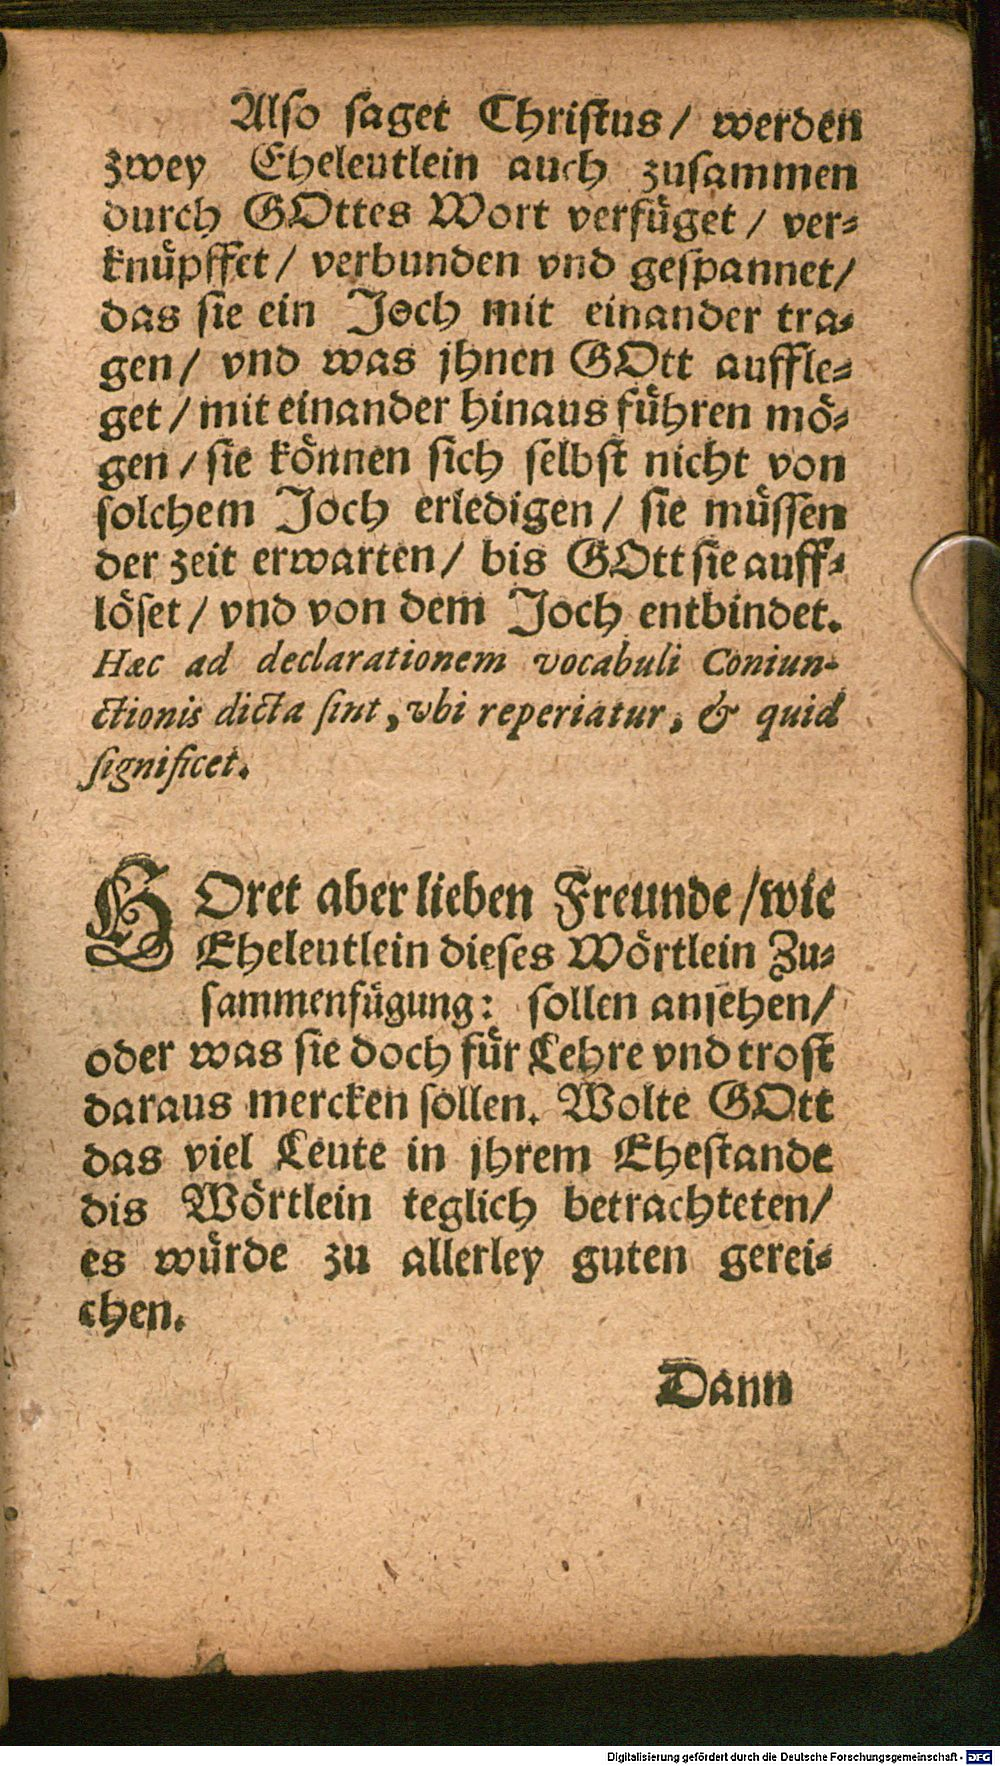 Also saget Christus / werden
zwey Eheleutlein auch zusammen
durch GOttes Wort verfüget / ver-
knüpffet / verbunden vnd gespannet /
das sie ein Joch mit einander tra-
gen / vnd was jhnen GOtt auffle-
get / mit einander hinaus führen mö-
gen / sie können sich selbst nicht von
solchem Joch erledigen / sie müssen
der zeit erwarten / bis GOtt sie auff-
löset / vnd von dem Joch entbindet.
Hæc ad declarationem vocabuli Coniun-
ctionis dicta sint, vbi reperiatur, & quid
significet.
HOret aber lieben Freunde / wie
Eheleutlein dieses Wörtlein Zu-
sammenfügung: sollen ansehen /
oder was sie doch für Lehre vnd trost
daraus mercken sollen. Wolte GOtt
das viel Leute in jhrem Ehestande
dis Wörtlein teglich betrachteten /
es würde zu allerley guten gerei-
chen.
Dann
Digitalisierung gefördert durch die Deutsche Forschungsgemeinschaft - DFG